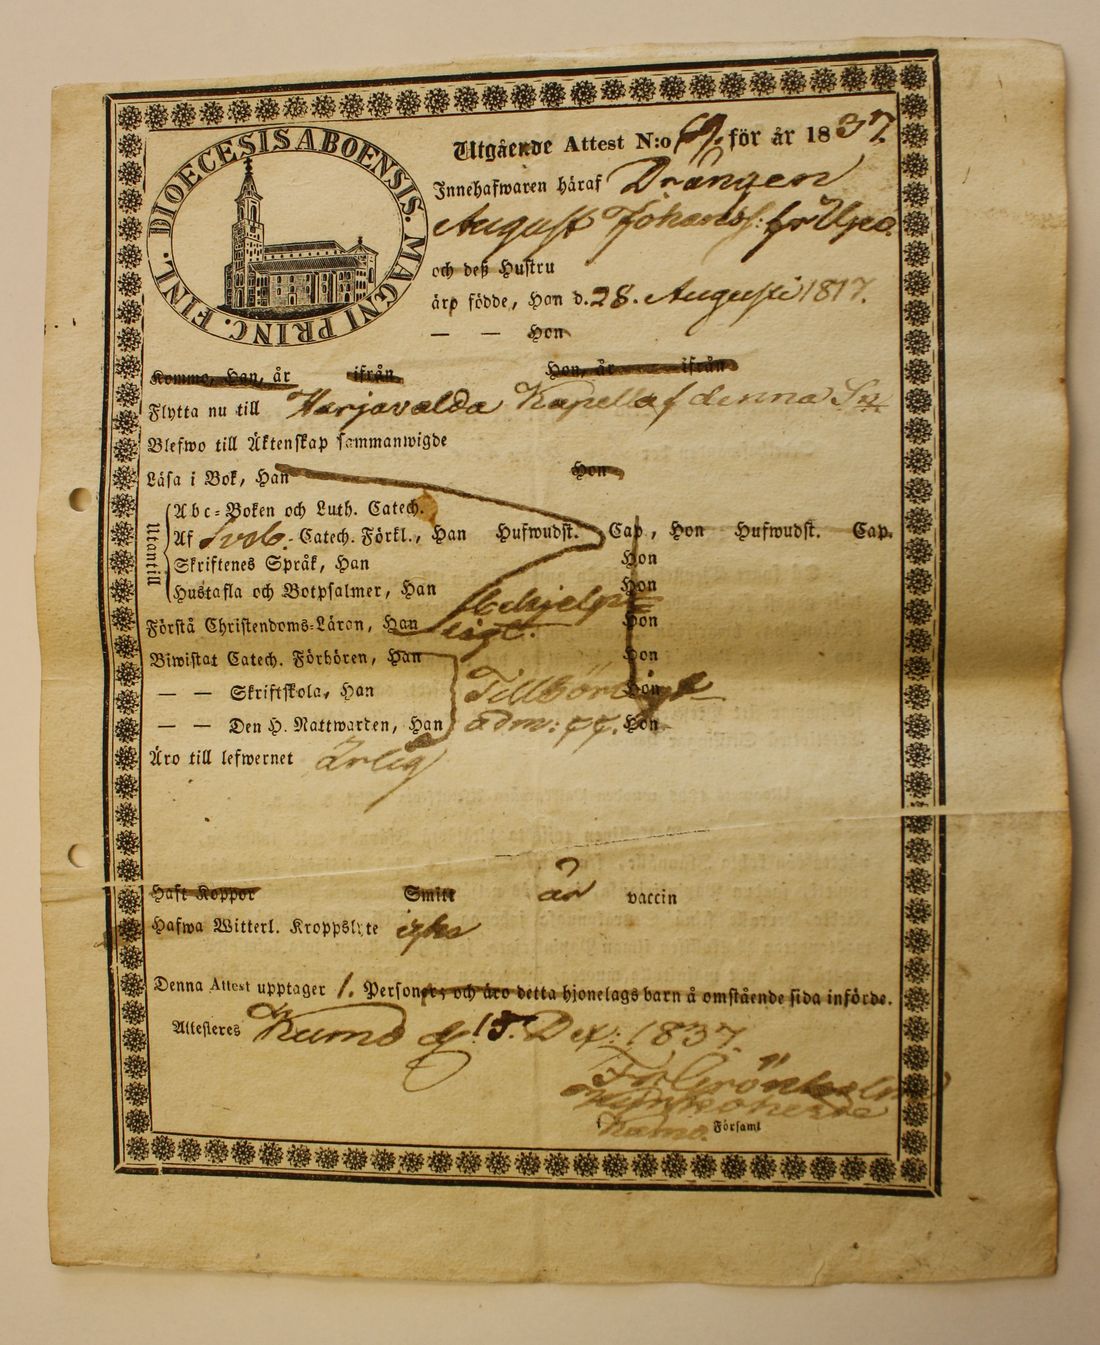 DIOECESIS ABOENSIS. MAGNI PRINC. FINL.
Utgående Attest N:o för år 1837.
Innehafwaren häraf Drängen
August Johanss: fr
och deß Hustru
äro födde, Han d. 28. Augusti 1817.
— — Hon
Komme, Han, år ifrån Hon, år ifrån
Flytta nu till Harjavalda Kapell af denna
Blefwo till Äktenskap sammanwigde
Läsa i Bok, Han Hon
Utantill
Abc-Boken och Luth. Catech.
Af Sveb.-Catech. Förkl., Han Hufwudst. Cap., Hon Hufwudst. Cap.
Skriftenes Språk, Han Hon
Hustafla och Botpsalmer, Han Hon
Förstå Christendoms-Läran, Han Hjelpligt. Hon
Biwistat Catech. Förhören, Han Hon
— — Skriftskola, Han Hon
— — Den H. Nattwarden, Han adm: Hon
Äro till lefwernet ärlig
Haft Koppor Smitt är vaccin
Hafwa Witterl. Kroppslyte
Denna Attest upptager 1. Personer, och äro detta hjonelags barn å omstående sida införde.
Attesteres Kumo d. 15. Dex: 1837.
Fr Grönholm
Kyrkoherde
i Kumo. Församl